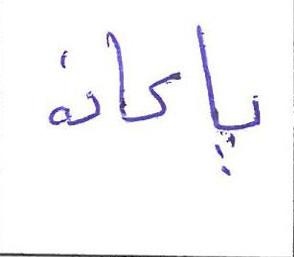 پاکانه